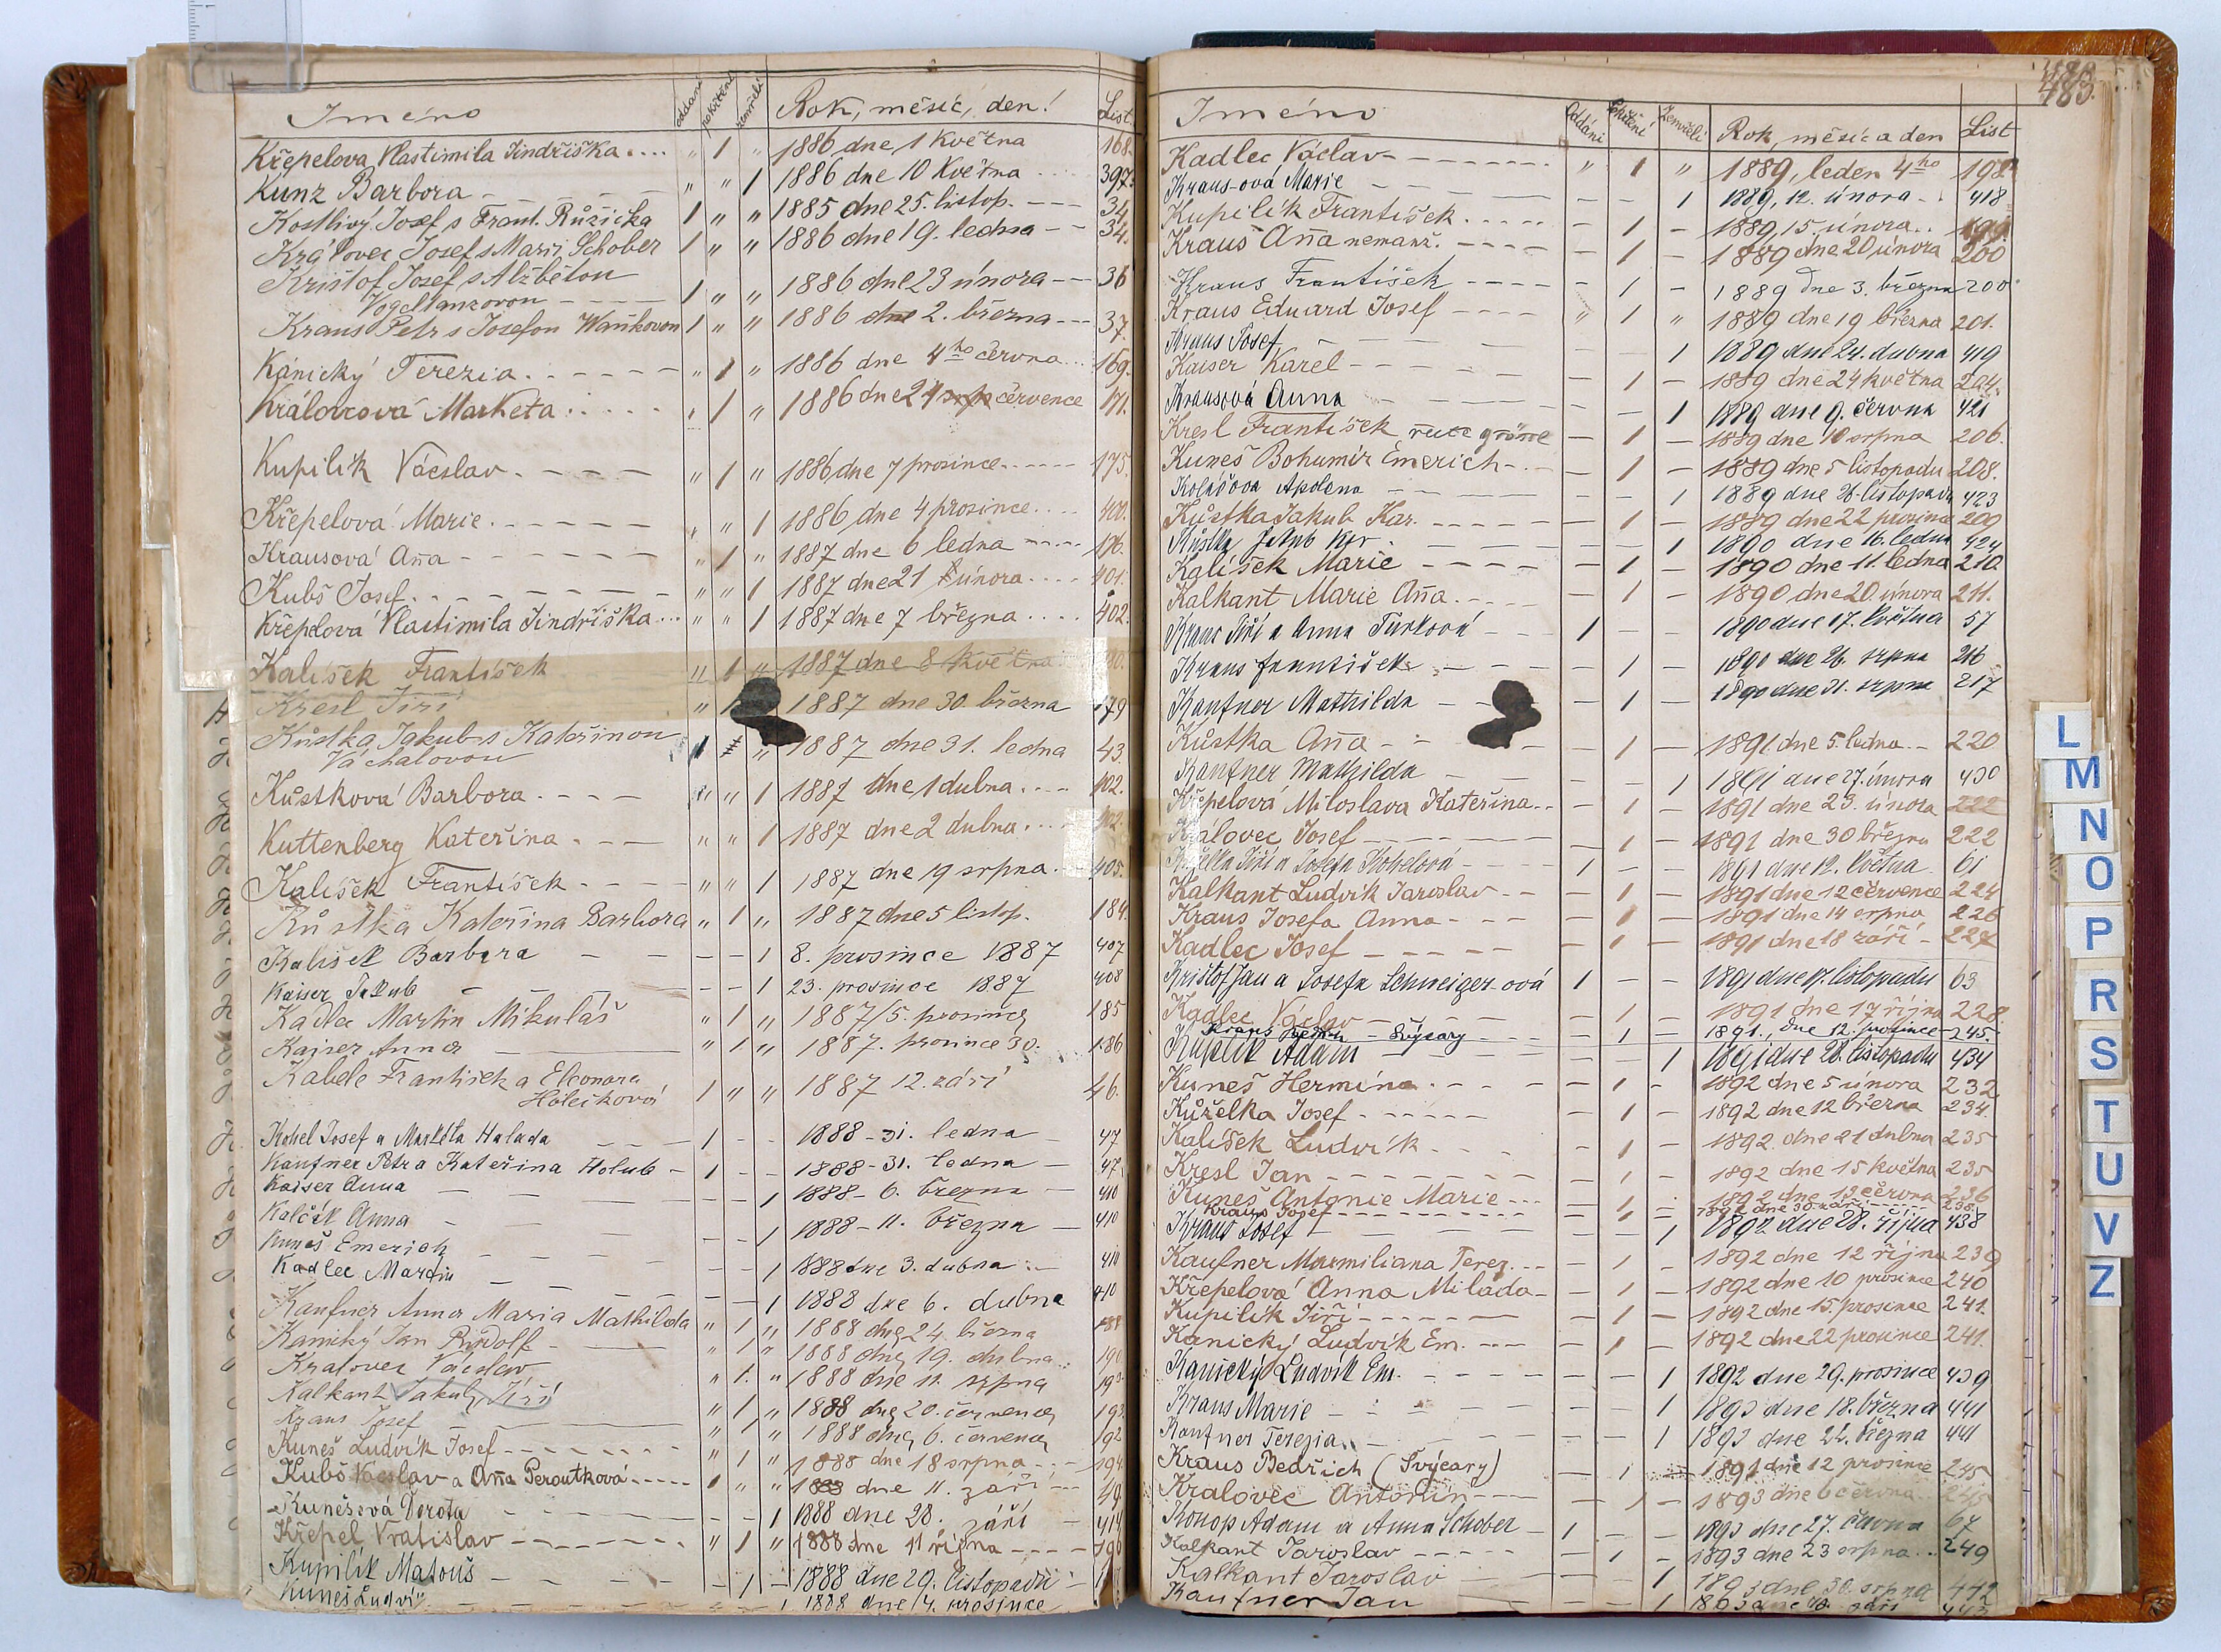 Jméno oddáni pokřtěni zemřeli Rok, měsíc, den! List.
Křepelova Vlastimila Jindřiška.... " 1 " 1886 dne 1 května 168.
Kunz Barbora - - - - " " 1 1886 dne 10 května 397.
Kostlivý Josef s Frant. Růžička 1 " " 1885 dne 25. listop. --- 34
Královec Josef s Marií Schober 1 " " 1886 dne 19. ledna -- 34.
Krištof Josef s Alžbětou
1 " " 1886 dne 23 února -- 36
Kraus Petr s Josefou Waňkovou 1 " " 1886 dne 2. března --- 37.
Kánický Terezia. - - - - - " 1 " 1886 dne 4ho června... 169.
Královcová Marketa..... " 1 " 1886 dne 24 července 171.
Kupilík Václav. - - - - " 1 " 1886 dne 7 prosince. - - - - 175.
Křepelová Marie. - - - - - " " 1 1886 dne 4 prosince.... 400.
Krausová Aña - - - - - - " 1 " 1887 dne 6 ledna ---- 176.
Kubš Josef. - - - - - - - " " 1 1887 dne 21 února.... 401.
Křepelová Vlastimila Jindřiška... " " 1 1887 dne 7 března.... 402.
Kalíšek František " 1 " 1887 dne 8 května
Kresl Jiří " 1 1887 dne 30. března 179
Kůstka Jakub s Kateřinou 1 " 1887 dne 31. ledna 43.
Váchalovou
Kůstková Barbora. - - - - " " 1 1887 dne 1 dubna.... 402.
Kuttenberg Kateřina. - - - " " 1 1887 dne 2 dubna... 402.
Kalíšek František. - - - - " " 1 1887 dne 19 srpna. 405.
Kůstka Kateřina Barbora " 1 " 1887 dne 5 listop. 184.
Kališek Barbora - - - - - 1 8. prosince 1887 407
Kaiser Jakub - - - - - 1 23. prosince 1887 408
Kadlec Martin Mikuláš " 1 " 1887 15. prosince 185
Kajser Anna " 1 " 1887. prosince 30. 186
Kabele František a Eleonora 1 " " 1887 12. září 46.
Holečková
Kohel Josef a Markéta Halada 1 - - 1888 - 31. ledna - 47
Kaufner Petr a Kateřina Holub - 1 - - 1888 - 31. ledna - 47.
Kaiser Anna - - - - - 1 1888 - 6. března - 410
Kalčík Anna - - - - 1 1888 - 11. března - 410
Kuneš Emerich - - - - -
Kadlec Martin - - - - 1 1888 dne 3. dubna - 410
1 1888 dne 6. dubna 410
Kaufner Anna Maria Mathilda " 1 " 1888 dne 24 března 188
Kanický Jan Rudolf - " 1 " 1888 dne 19. dubna 190
Královec Václav " 1 " 1888 dne 11. srpna 193
Kalkant Jakub Jiří " 1 " 1888 dne 20. července 193.
Kraus Josef " 1 " 1888 dne 6. července 192
Kuneš Ludvík Josef - - - - - - - " 1 " 1888 dne 18 srpna... 194.
Kubš Václav a Aña Peroutková ..... 1 " " 1888 dne 11. září 49.
Kunešová Dorota - - - - - 1 1888 dne 28. září - 414
Křepel Vratislav - - - - - - - " 1 " 1888 dne 11 října - - - - 196
Kupilík Matouš - - - - - 1 - 1888 dne 29. listopadu -
Kuneš Ludvík - - - - - 1 1888 dne 14. prosince
483.
Jméno Oddáni Křtěni Zemřeli Rok, měsíc a den List
Kadlec Václav - - - - - - - " 1 " 1889, leden 4ho 198
Kraus-ová Marie - - - - - 1 1889, 12. února.. 418
Kupilík František..... - 1 - 1889, 15. února.. 199.
Kraus Aña nemanž. - - - - - 1 - 1889 dne 20 února 200
Kraus František - - - - - 1 - 1889 dne 3. března 200
Kraus Eduard Josef - - - - " 1 " 1889 dne 19 března 201.
Kraus Josef - - - - - 1 1889 dne 24. dubna 419
Kaiser Karel - - - - - 1 - 1889 dne 24 května 204.
Krausová Anna - - - - - 1 1889 dne 9. června 421
Kresl František - 1 - 1889 dne 10 srpna 206.
Kuneš Bohumír Emerich - - 1 - 1889 dne 5 listopadu 208.
Kolářova Apolena - - - - - 1 1889 dne 26. listopadu 423
Kůstka Jakub Kar. - - - - - - 1 - 1889 dne 22 prosince 209
Kůstka Jakub Kar. - - - - - 1 1890 dne 16. ledna 424
Kalíšek Marie - - - - - 1 - 1890 dne 11. ledna 210
Kalkant Marie Aña. - - - 1 - 1890 dne 20. února 211.
Kraus Jiří a Anna Turková - - 1 - - 1890 dne 17. května 57
Kraus František - - - - 1 - 1890 dne 26. srpna 216
Kaufner Mathilda - - - 1 - 1890 dne 31. srpna 217
Kůstka Aña - - - 1 - 1891 dne 5. ledna. - 220
Kaufner Mathilda - - - - 1 1891 dne 27. února 430
Křepelová Miloslava Kateřina.. - 1 - 1891 dne 23. února 222
Královec Josef - - - - - 1 - 1891 dne 30 března 222
Kuželka Jiří a Josefa Kohelová - - - - 1 - - 1891 dne 12. května 61
Kalkant Ludvík Jaroslav. - - - 1 - 1891 dne 12 července 224
Kraus Josefa Anna - - - - 1 - 1891 dne 14 srpna 226
Kadlec Josef - - - - - 1 - 1891 dne 18 září - 227
Krištof Jan a Josefa Schweiger-ová 1 - - 1891 dne 17. listopadu 63
Kadlec Václav - - - - - 1 - 1891 dne 17 října 228
Kraus - Švýcary - - - - 1 - 1891., dne 12. prosince - 245.
Kupilík Adam - - - - - 1 1891 dne 28. listopadu 434
Kuneš Hermína. - - - - 1 - 1892 dne 5 února 232
Kůželka Josef - - - - - - 1 - 1892 dne 12 března 234.
Kalíšek Ludvík. - - - - 1 - 1892 dne 21 dubna 235
Kresl Jan - - - - - - 1 - 1892 dne 15 května 235
Kuneš Antonie Marie ... - 1 - 1892 dne 13 června 236
Kraus Josef - - - - - - 1 - 1892 dne 30. září 238.
Kraus Josef - - - - - 1 1892 dne 28. října 438
Kaufner Maxmiliana Terez. - - - 1 - 1892 dne 12 října 239
Křepelová Anna Milada - - 1 - 1892 dne 10 prosince 240
Kupilík Jiří - - - - - 1 - 1892 dne 15. prosince 241.
Kanický Ludvík Em. - - - - 1 - 1892 dne 22 prosince 241.
Kanický Ludvík Em. - - - - - - 1 1892 dne 29. prosince 439
Kraus Marie - - - - - 1 1893 dne 18. března 441
Kaufner Terezia - - - 1 1893 dne 22. března 441
Kraus Bedřich (Švýcary) - 1 - 1891 dne 12 prosince 245
Kralovec Antonín - - - - 1 - 1893 dne 6 června 245
Konop Adam a Anna Schober - 1 - - 1893 dne 27. června 67
Kalkant Jaroslav - - - - - - 1 - 1893 dne 23 srpna... 249
Kalkant Jaroslav - - - - 1 1893 dne 30. srpna 442
Kaufner Jan - - 1 1893 dne září
L
M
N
O
P
R
S
T
U
V
Z